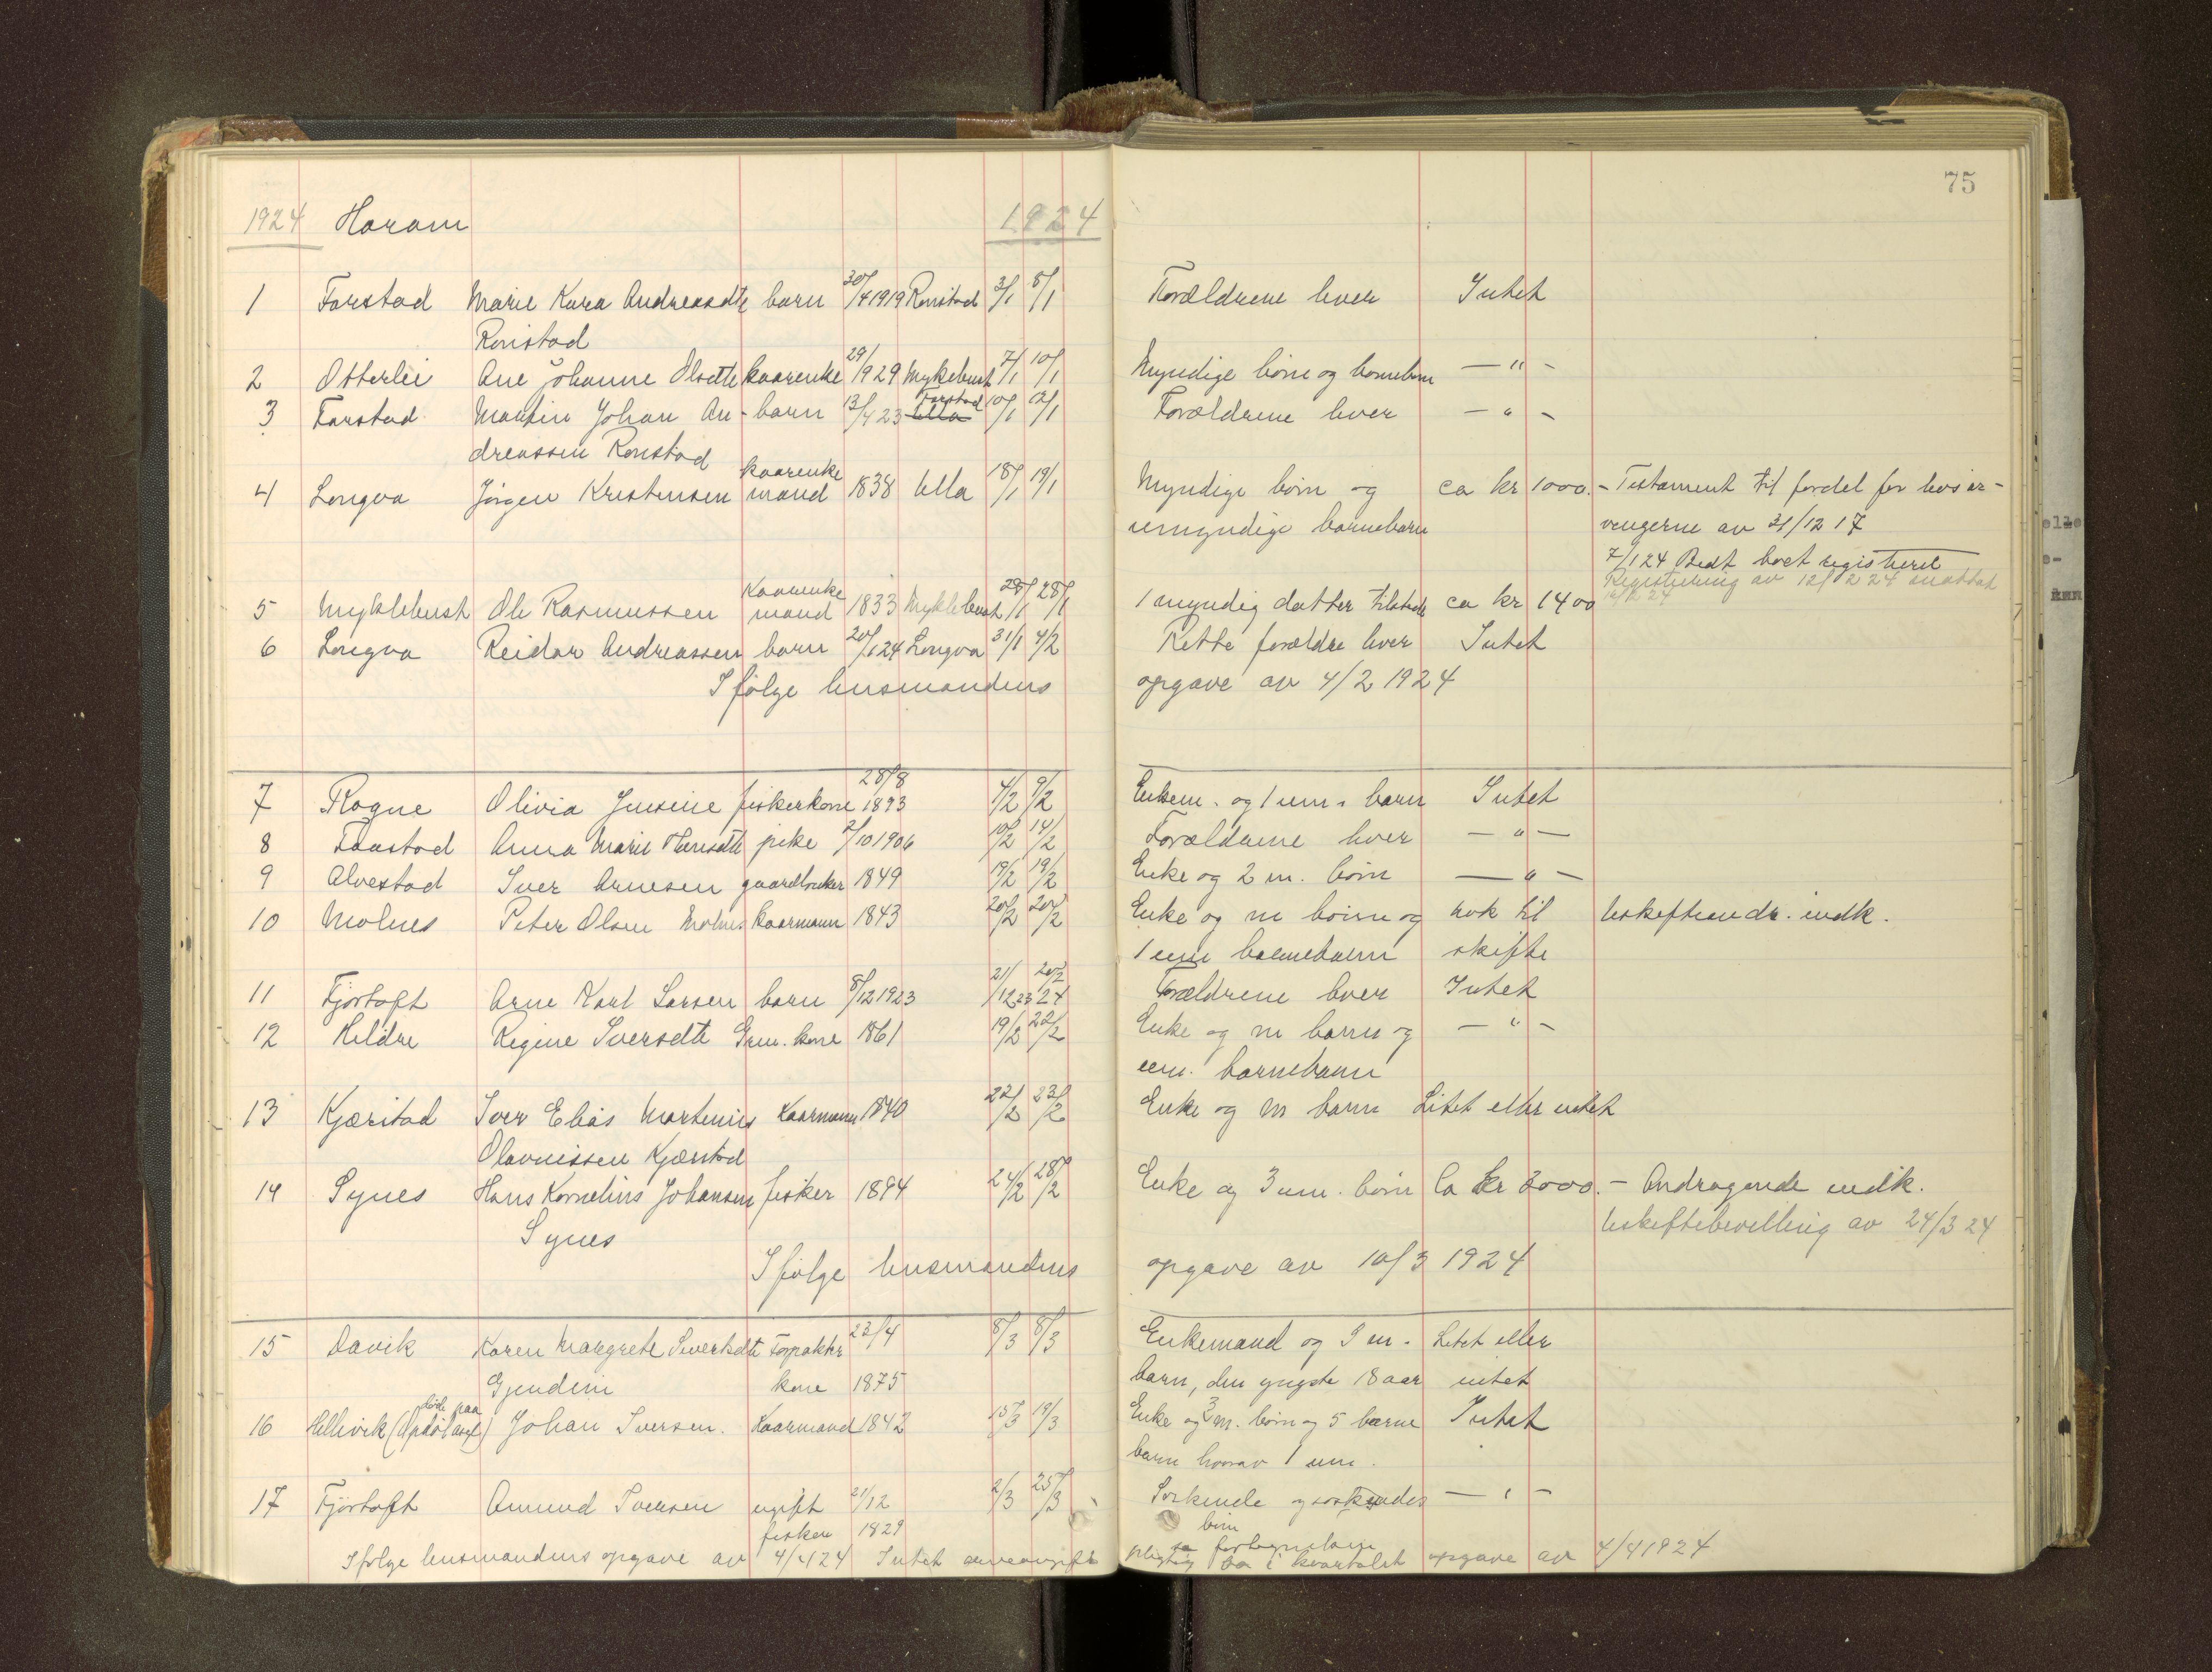 75
1924 Haram 1924
1 Farstad Marie Kara Andreasdtr barn 30/4 1919 Ronstad 3/1 8/1 Forældrene lever Intet
Ronstad
2 Otterlei Ane Johanne Olsdtr kaarenke 29/9 29 Myklebust 7/1 10/1 Myndige børn og barnebarn — " -
3 Farstad Martin Johan An- barn 13/4 23 Farstad 10/1 12/1 Forældrene lever — " -
dreassen Ronstad
4 Longva Jörgen Kristensen kaarenke 1838 Ulla 18/1 19/1 Myndige børn og ca kr 1000.- Testament til fordel for livsar-
mand umyndige barnebarn vengerne av 31/12 17
7/1 24 Bedt boet registreret
Registrering av 12/2 24
5 Myklebust Ole Rasmussen Kaarenke 1833 Myklebust 28/1 28/1 1 myndig datter tilstede ca kr 1400
mand
6 Longva Reidar Andreassen barn 20/1 24 Longva 31/1 4/2 Rette forældre lever Intet
Ifølge lensmandens opgave av 4/2 1924
7 Rogne Olivia Jensine fiskerkone 28/8 1893 4/2 9/2 Enkem. og 1 um. barn Intet
8 Farstad Anna Marie Hansdtr pike 2/10 1906 10/2 14/2 Forældrene lever — " —
9 Alvestad Iver Arnesen gaardbruker 1849 19/2 19/2 Enke og 2 m. børn — " -
10 Molnes Peter Olsen Molnes Kaarmann 1843 20/2 20/2 Enke og m børn og nok til Uskifteandr. indk.
1 um barnebarn skifte
11 Fjörtoft Arne Karl Larsen barn 8/12 1923 21/12 23 20/2 24 Forældrene lever Intet
12 Hildre Regine Iversdtr Grm. kone 1861 19/2 22/2 Enke og m barn og — " -
um. barnebarn
13 Kjærstad Iver Elias Martinus Kaarmann 1840 22/2 23/2 Enke og m barn Litet eller intet
Olavnissen Kjærstad
14 Synes Hans Kornelius Johansen fisker 1894 24/2 28/2 Enke og 3 um. børn Ca kr 2000.- Andragende indk.
Synes Uskiftebevilling av 24/3 24
Ifølge lensmandens opgave av 10/3 1924
15 Davik Karen Margrete Sivertsdtr Forpakter 23/4 8/3 8/3 Enkemand og 9 m. Litet eller
Gjendem kone 1875 barn, den yngste 18 aar intet
16 Hellevik (döde paa Opdöl asyl) Johan Iversen. Kaarmand 1842 15/3 19/3 Enke og 3 m. børn og 5 barne Intet
barn hvorav 1 um.
17 Fjörtoft Amund Iversen ugift 21/12 2/3 25/3 Søskende og søskendes — " -
fisker 1829 børn
Ifølge lensmandens opgave av 4/4 24 Intet arveavgifts
pligtig bo i kvartalet opgave av 4/4 1924